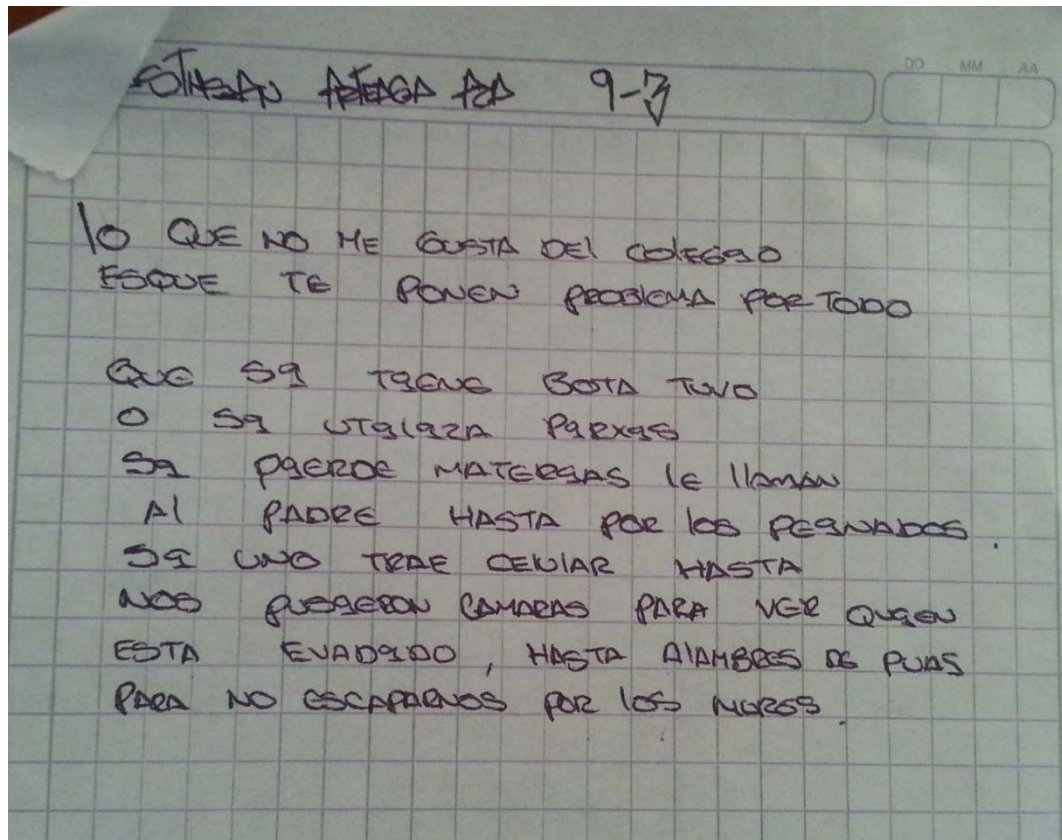 ESTHEBAN ARTEAGA AZA 9-3
DD MM AA
lO QUE NO ME GUSTA DEl COlEGiO
ESQUE TE PONEN PROBlEMA POR TODO
QUE Si TiENE BOTA TUVO
O Si UTiliZA PiRXiS
Si PiERDE MATERiAS lE llAMAN
Al PADRE HASTA POR lOS PEiNADOS.
Si UNO TRAE CElUlAR HASTA
NOS PUSiERON CAMARAS PARA VER QUiEN
ESTA EVADiDO, HASTA AlAMBRES DE PUAS
PARA NO ESCAPARNOS POR lOS MUROS.